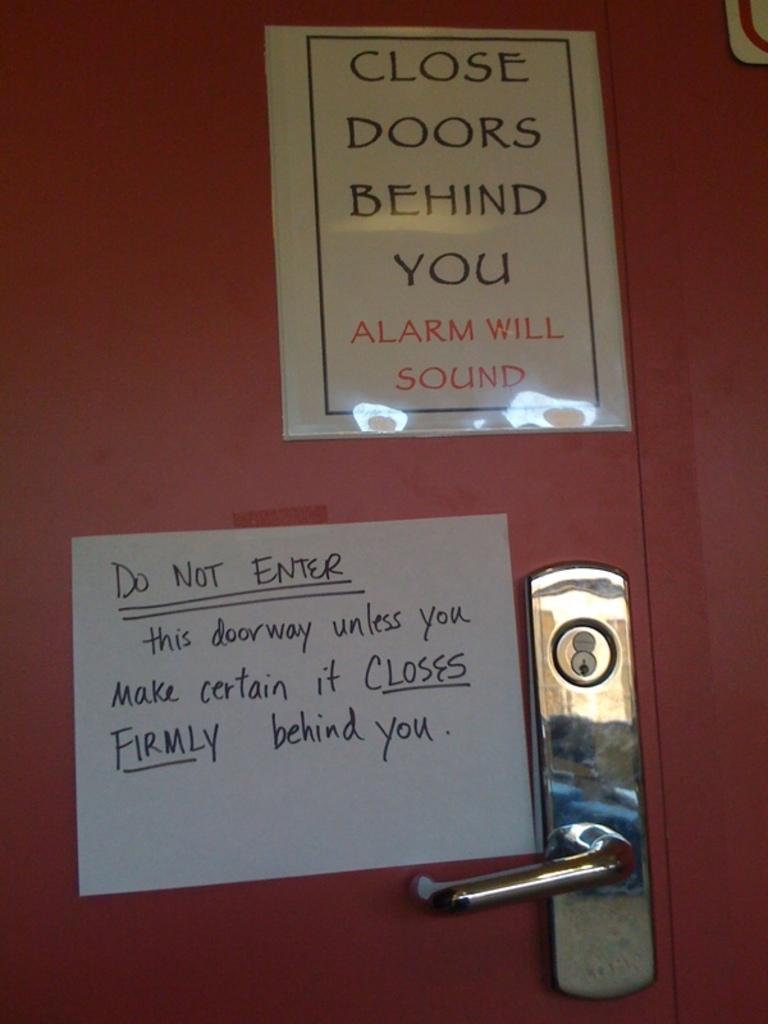 CLOSE
DOORS
BEHIND
YOU
ALARM WILL
SOUND
DO NOT ENTER
this doorway unless you
make certain it CLOSES
FIRMLY behind you.